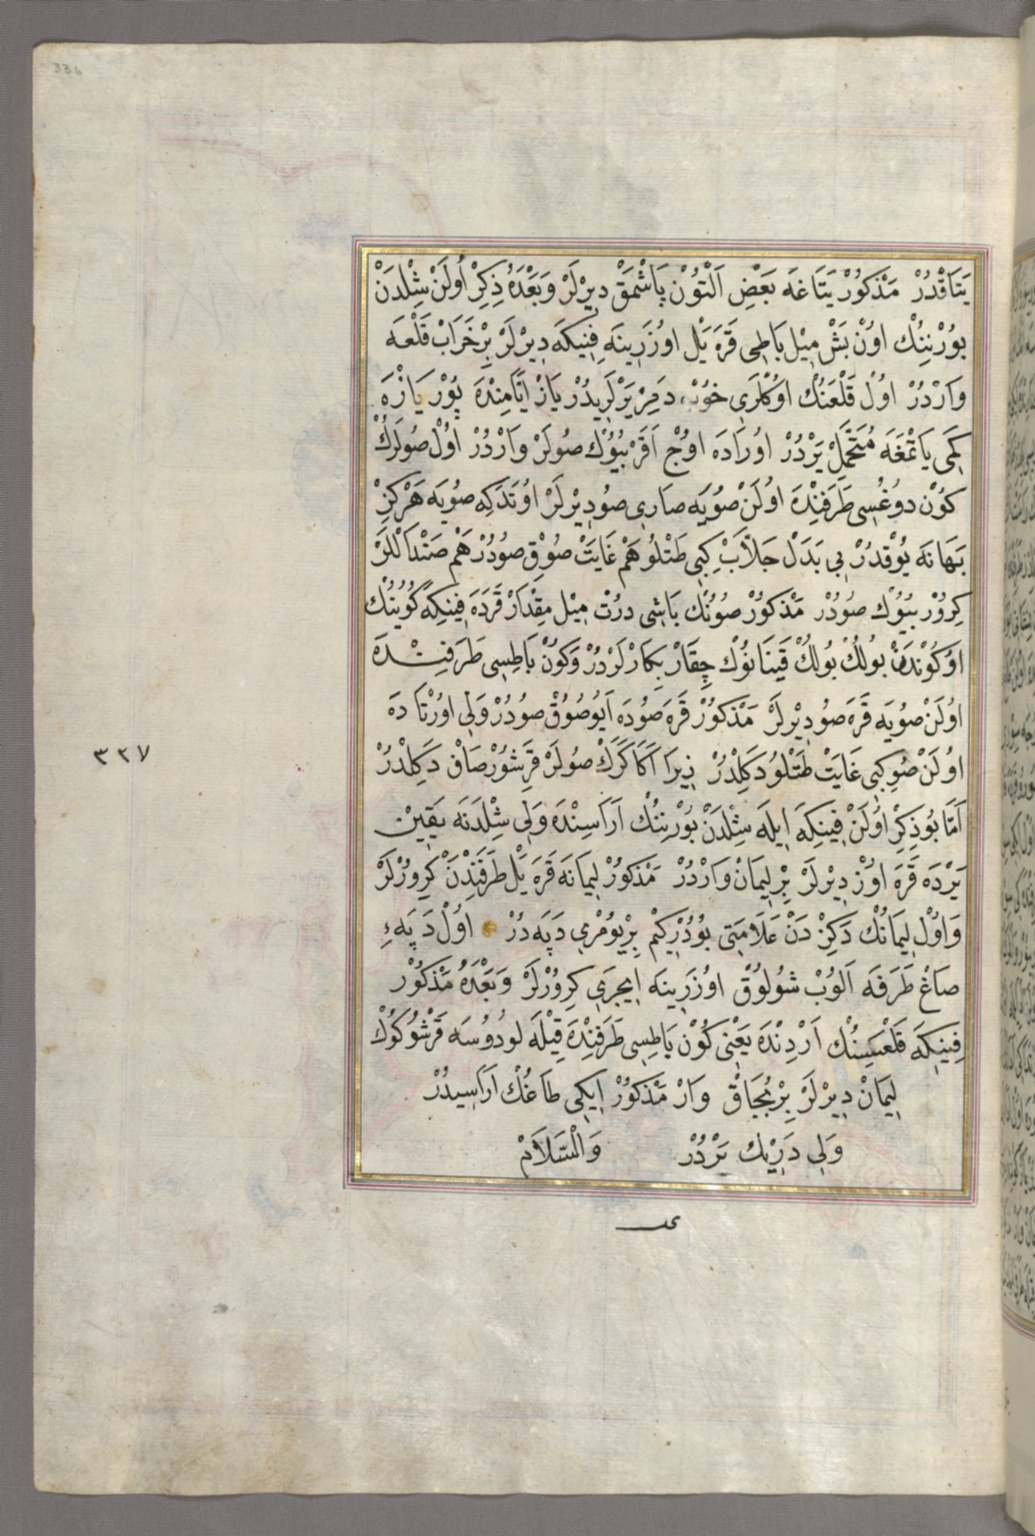 336
يتاقدر مذكور يتاغه بعض التون باشمق ديرلر وبعده ذكر اولن شلدن
بورننك اون بش ميل باطى قره يل اوزرينه فنيكه ديرلر بر خراب قلعه
واردر اول قلعنك اوكلرى خوب دمر يرلريدر ياز ايامنده بو يره
كمى ياتمغه متحمل يردر اوراده اوج اقر بيوك صولر واردر اول صولرك
كون دوغسى طرفنده اولن صويه صارى صو ديرلر اوتدكه صويه هركز
بهانه يوقدر بى بدل جلاب كبى طتلو هم غايت صوق صودر هم صندللر
كرور بيوك صودر مذكور صونك باشى درت ميل مقدار قرده فينكه كوينك
اوكوندن بولك بولك قيناتوك چقار بكارلردر وكون باطسى طرفنده
اولن صويه قره صو ديرلر مذكور قره صوده ايو صوق صودر ولى اورتاده
اولن صو كبى غايت طتلو دكلدر زيرا اكا كرك صولر قرشور صاف دكلدر
اما بو ذكر اولن فينكه ايله شلدن بورننك اراسنده ولى شلدنه يقين
يرده قره اوز ديرلر بر ليمان واردر مذكور ليمانه قره يل طرفندن كرورلر
واول ليمانك دكزدن علامتى بودركم بر يومرى دپه در اول دپهء
صاغ طرفه الوب شولوق اوزرينه ايجرى كرورلر وبعده مذكور
فينكه قلعسنك اردنده يعنى كون باطسى طرفنده قبله لودوسه قرشو كوك
ليمان ديرلر بر بجاق وار مذكور ايكى طاغك اراسيدر
ولى درين يردر والسلام
٣٢٧